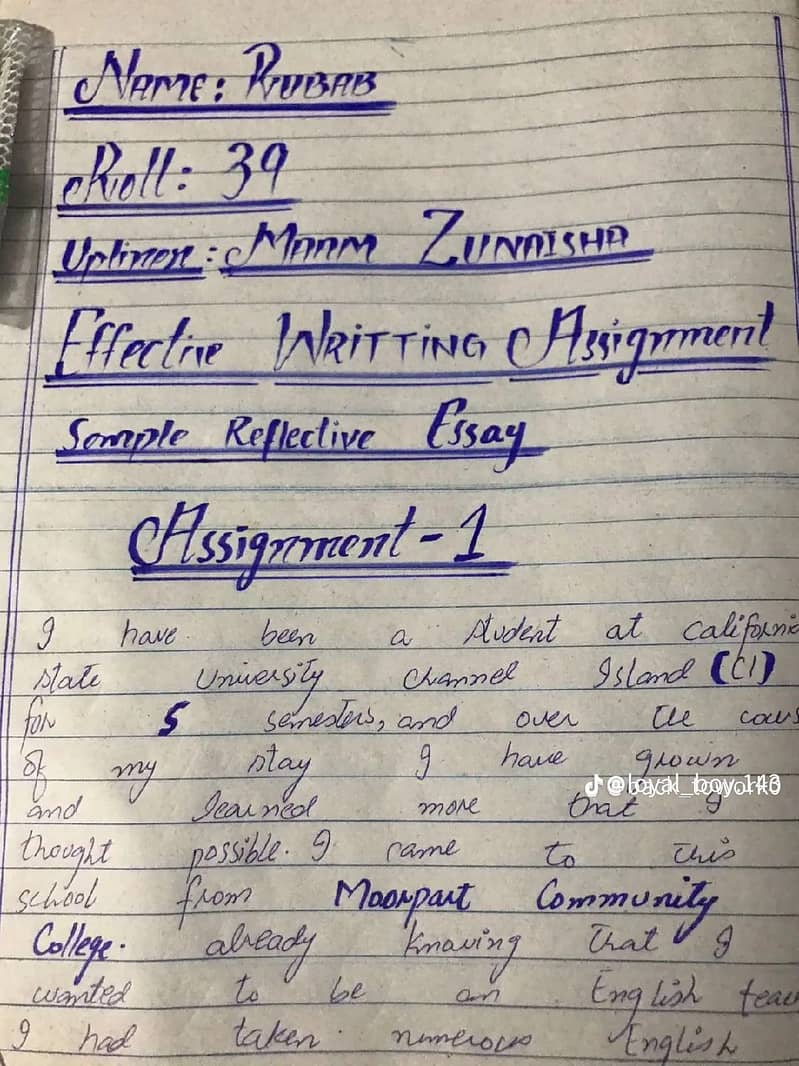 Name: Rubab
Roll: 39
Upliner: Maam Zunaisha
Effective Writting Assignment
Sample Reflective Essay
Assignment-1
I have been a student at California
state University Channel Island (CI)
for 5 semesters, and over the cours
of my stay I have grown
and learned more that I
thought possible. I came to this
school from Moorpart Community
College. already knowing that I
wanted to be an English teac
I had taken numerous English